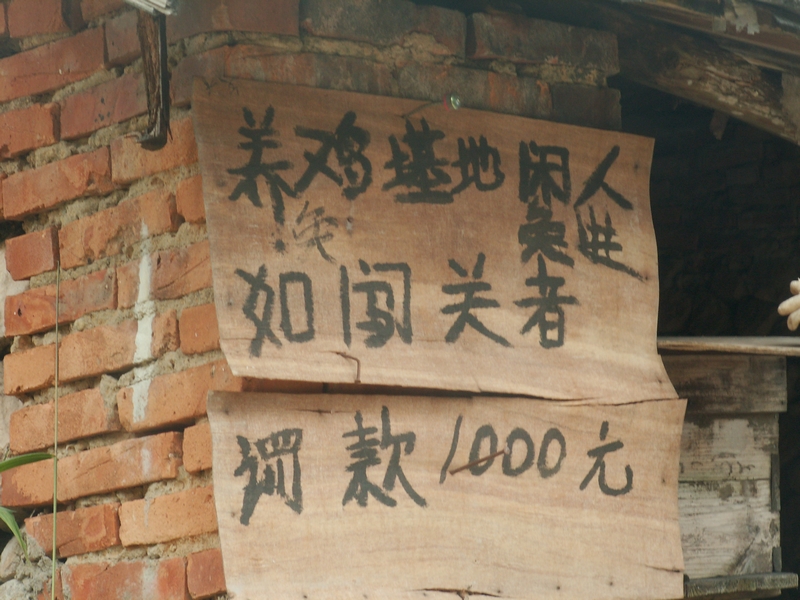 养鸡基地闲人
兔进
如闯关者
罚款1000元